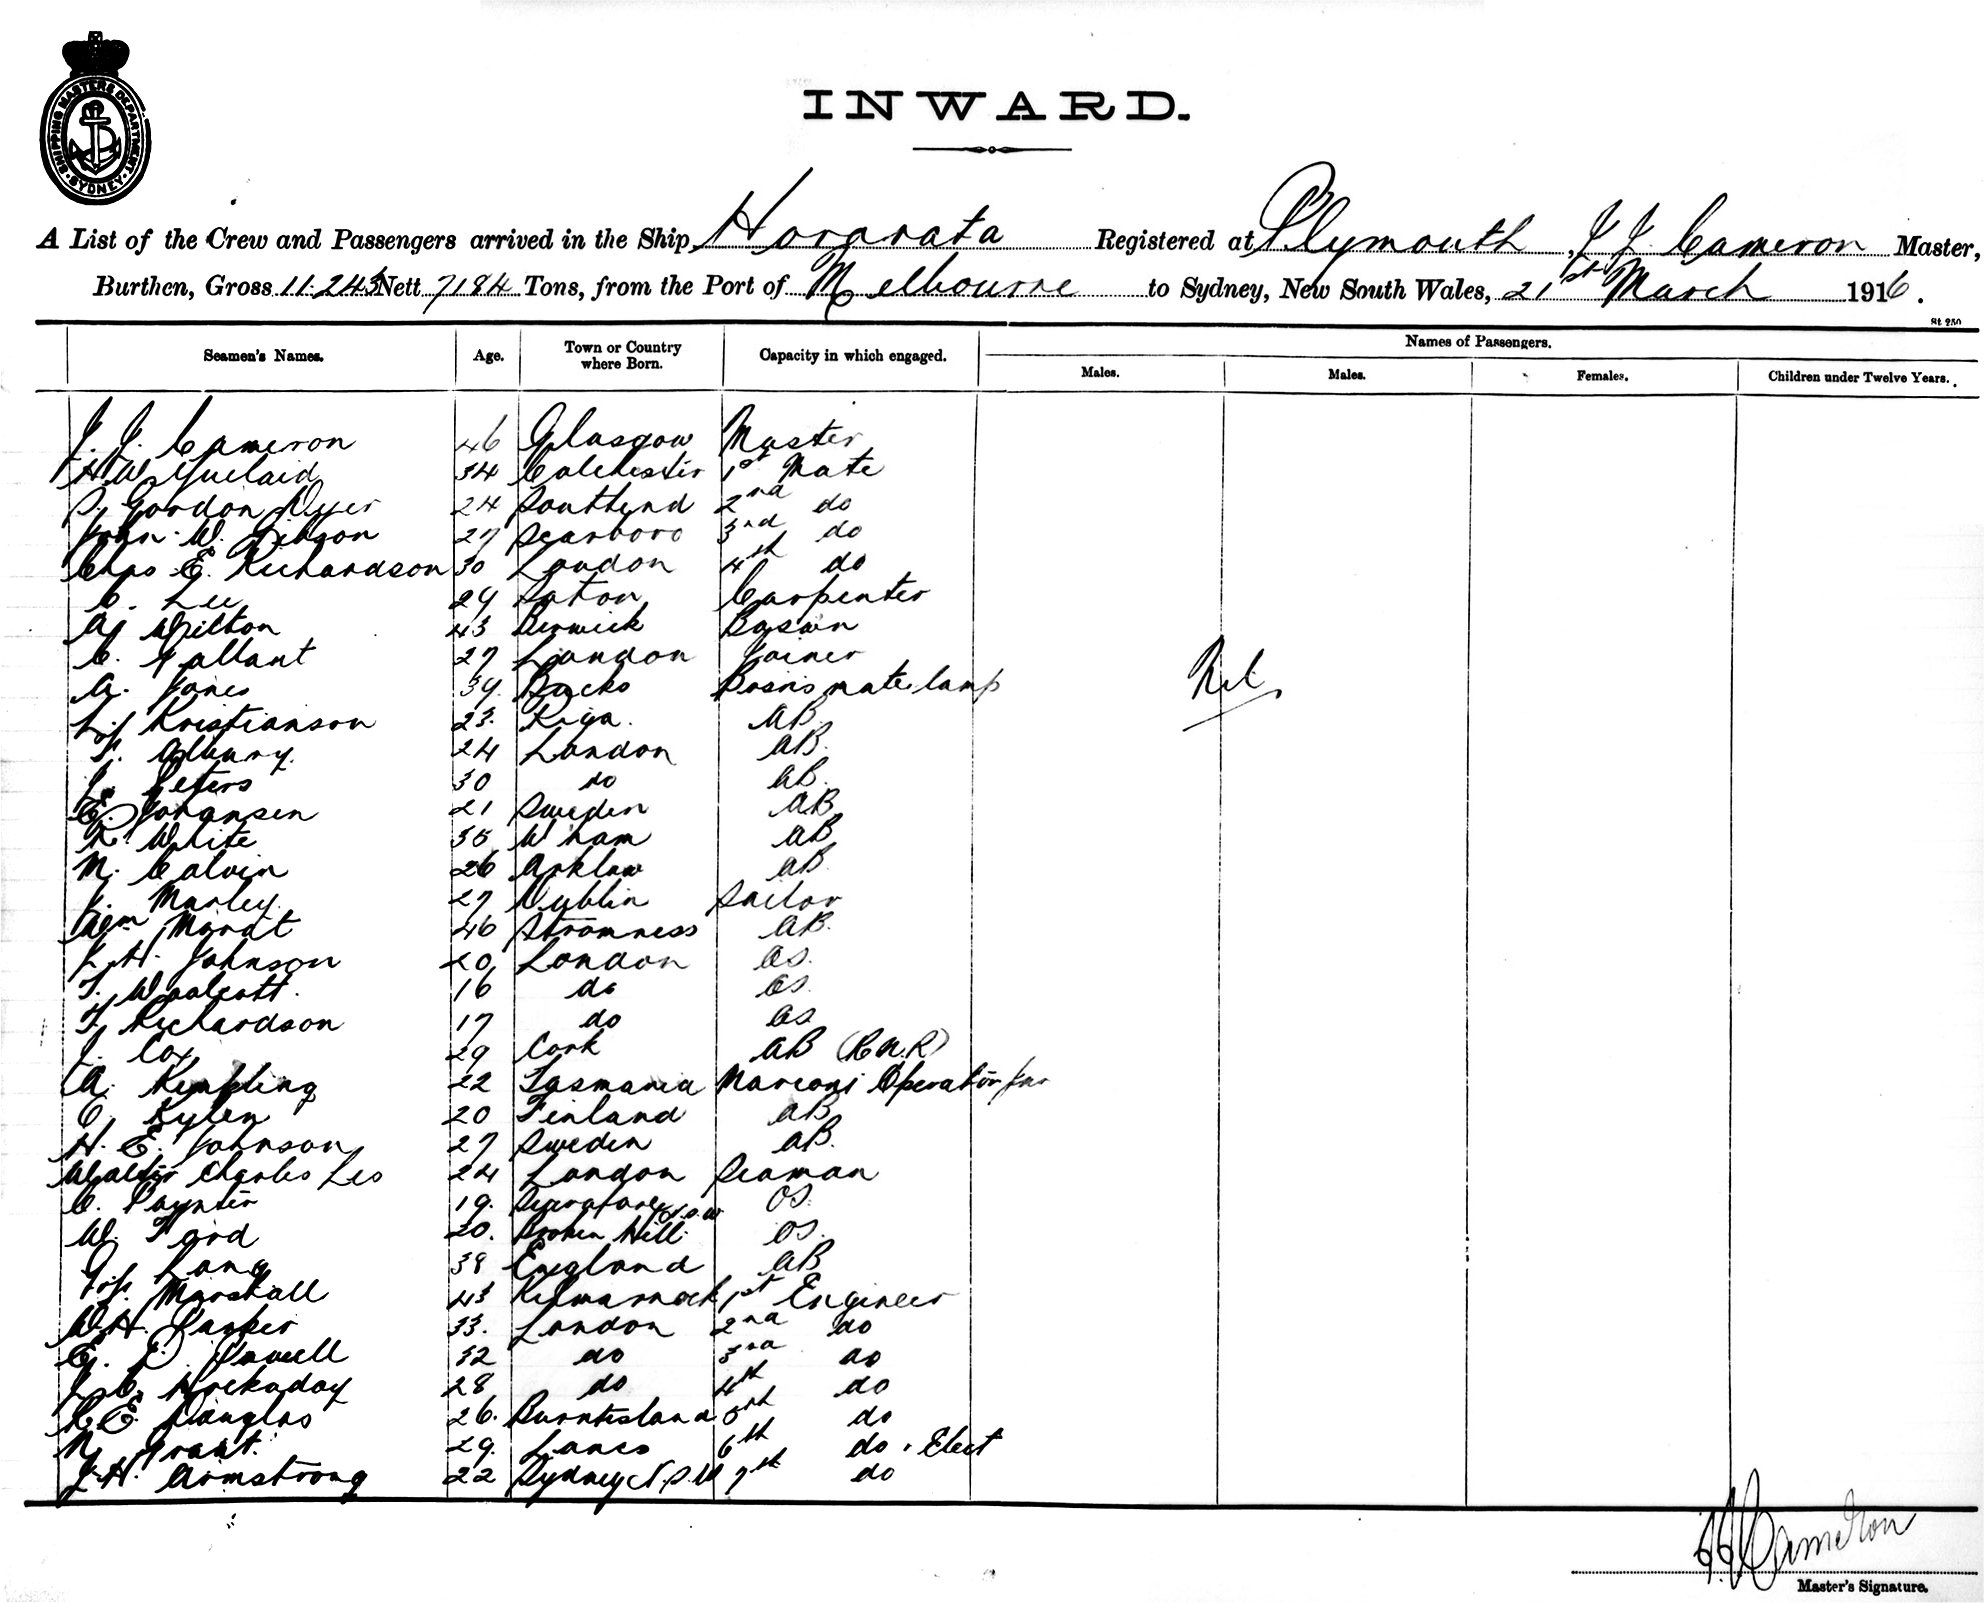 SHIPPING MASTERS DEPARTMENT · SYDNEY ·
INWARD.
A List of the Crew and Passengers arrived in the Ship Hororata Registered at Plymouth, J. J. Cameron Master,
Burthen, Gross 11.243 Nett 7184 Tons, from the Port of Melbourne to Sydney, New South Wales, 21st March 1916.
St 250
Seamen's Names. Age. Town or Country where Born. Capacity in which engaged. Names of Passengers.
Males. Males. Females. Children under Twelve Years.
J. J. Cameron 46 Glasgow Master
H. W. 34 Colchester 1st Mate
Gordon Dyer 24 Southend 2nd do
John W. Gibson 27 Scarboro 3rd do
Chas E. Richardson 30 London 4th do
C. Lee 29 Carpenter
A. Wilton 43 Berwick Bosun
C. Gallant 27 London Joiner
A. Jones 39 Bucks Bosns mate lamp
Nil
Kristianson 23. Riga. AB.
F. Albury. 24 London AB.
J. Peters 30 do AB.
E. Johansen 21 Sweden AB
White 35 W ham AB
M. Calvin 26 Arklow AB.
J. Marley. 27 Dublin Sailor
Wm 46 Stromness AB.
H. Johnson 20 London OS.
T. Woolcott. 16 do OS.
F. Richardson 17 do OS
J. Cox 29 Cork AB (R.N.R)
A. Kempling 22 Tasmania Marconi Operator
C. Kylen 20 Finland AB
H. E. Johnson 27 Sweden AB.
Walter Charles Les 24 London Seaman
C. Paynter 19. OS.
W. Ford 20. Broken Hill N.S.W OS.
Lang 38 England AB
Marshall 43 Kilmarnock 1st Engineer
W. H. Parker 33. London 2nd do
G. P. Powell 32 do 3rd do
J. C. Hockaday 28 do 4th do
R. E. Douglas 26. Burntisland 5th do
N. Grant. 29. Lancs 6th do. Elect
J. H. Armstrong 22 Sydney N.S.W 7th do
J J Cameron
Master's Signature.